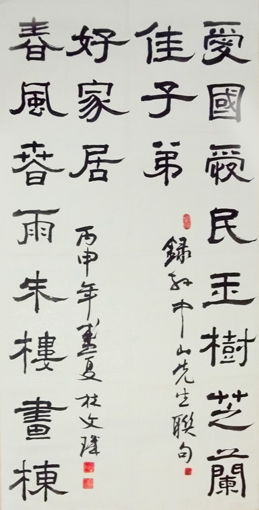 愛國愛民玉樹芝蘭
佳子弟
錄孙中山先生聯句
春風春雨朱樓畫棟
好家居
丙申年孟夏杜文